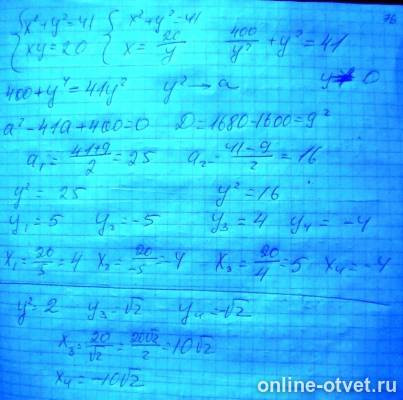 76
{x²+y²=41 {x²+y²=41
{xy=20 {x=20/y 400/y²+y²=41
400+y⁴=41y² y²→a y≠0
a²-41a+400=0 D=1680-1600=9²
a₁=(41+9)/2=25 a₂=(41-9)/2=16
y²=25 y²=16
y₁=5 y₂=-5 y₃=4 y₄=-4
x₁=20/5=4 x₂=20/-5=-4 x₃=20/4=5 x₄=-4
y²=2 y₃=√2 y₄=-√2
x₃=20/√2=20√2/2=10√2
x₄=-10√2
online-otvet.ru